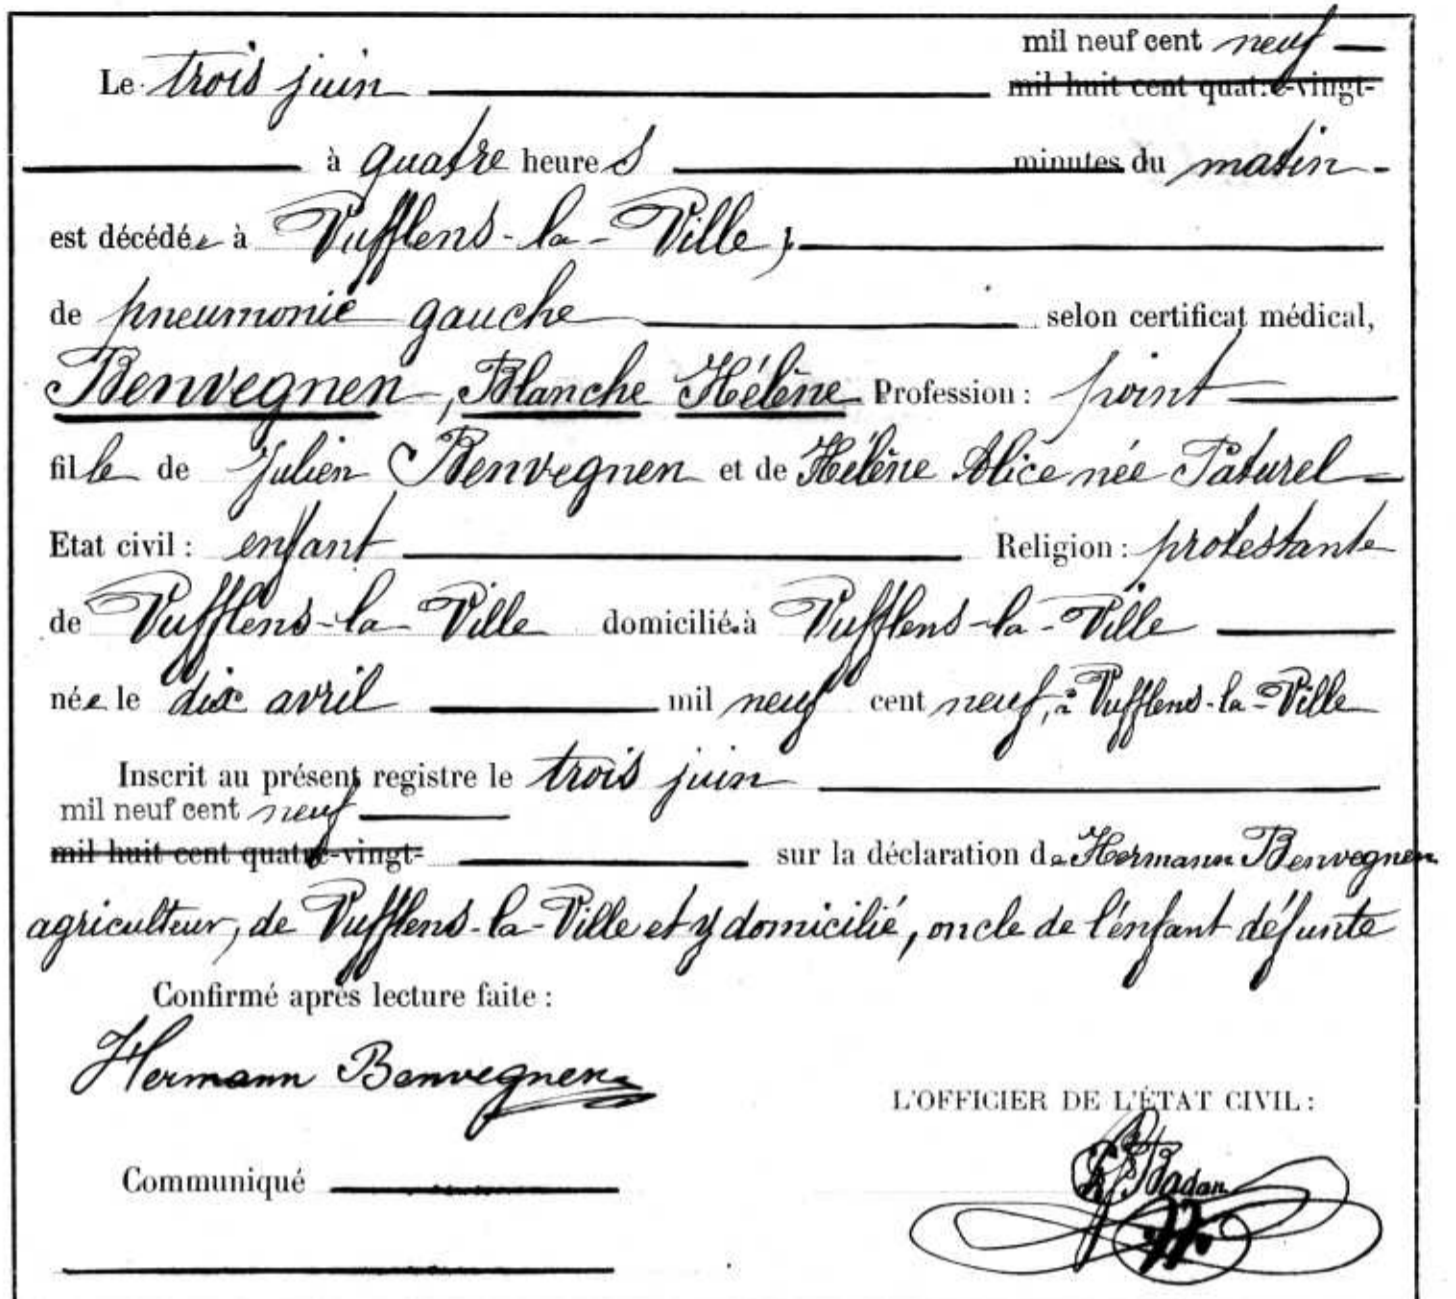 mil neuf cent neuf
Le trois juin mil huit cent quatre-vingt-
à quatre heures minutes du matin
est décédée à Vufflens-la-Ville,
de pneumonie gauche selon certificat médical,
Benvegnen, Blanche Hélène Profession : point
fille de Julien Benvegnen et de Hélène Alice née Paturel
Etat civil : enfant Religion : protestante
de Vufflens-la-Ville domicilié à Vufflens-la-Ville
née le dix avril mil neuf cent neuf, à Vufflens-la-Ville
Inscrit au présent registre le trois juin
mil neuf cent neuf
mil huit cent quatre-vingt- sur la déclaration de Hermann Benvegnen
agriculteur, de Vufflens-la-Ville et y domicilié, oncle de l'enfant défunte
Confirmé après lecture faite :
Hermann Benvegnen
L'OFFICIER DE L'ÉTAT CIVIL :
Badan
Communiqué